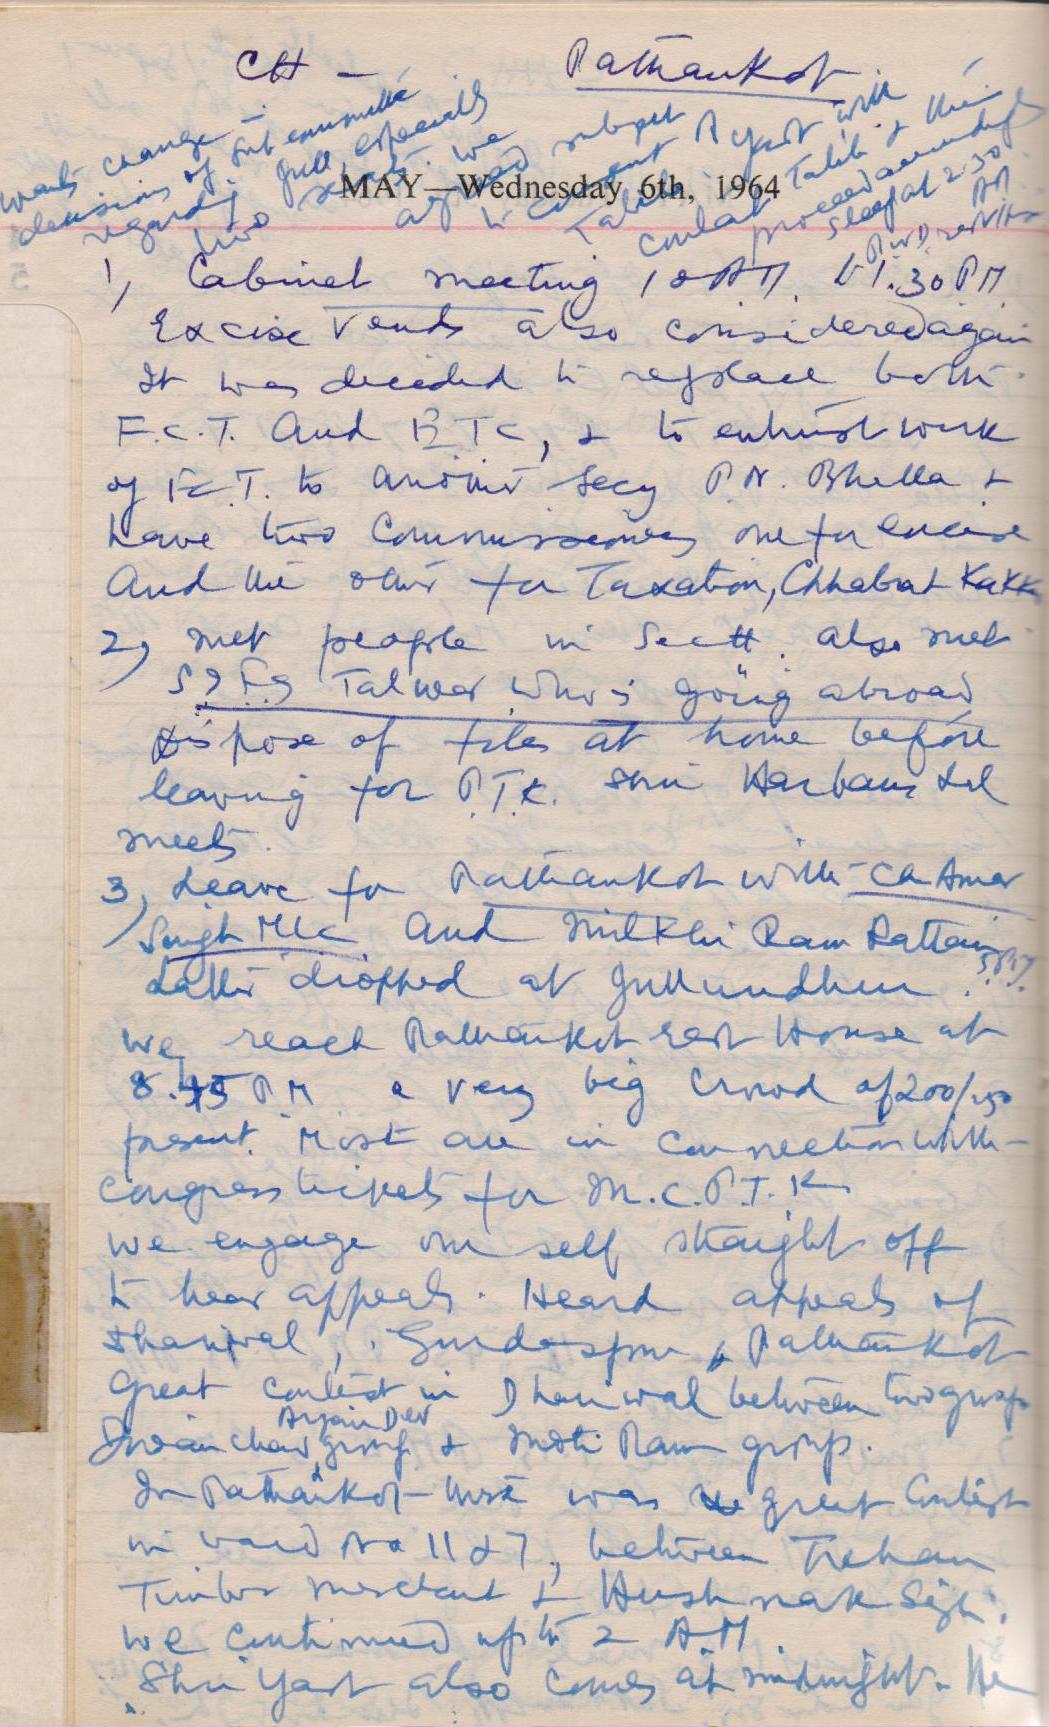 CH - Pathankot
wants change in
decisions of Sub committe
regarding Jull, especially
two seats. we
agreed subject
to consent of Yash with
Talib
contact Talib & then
proceed accordingly
sleep at 2.30
AM
PWD rest House
MAY—Wednesday 6th, 1964
1, Cabinet meeting 10 AM. to 1.30 PM
Excise Vends also considered again
It was decided to replace both
F.C.T. And ETC, & to entrust work
of FCT. to another Secy P.N. Bhalla &
have two Commissioners one for Excise
And the other for Taxation, Chhabra &
2, met people in Sectt. also met
Talwar who is going abroad
Dispose of files at home before
leaving for P.T.K. Shri Harbans Lal
meets.
3, Leave for Pathankot with Ch Amar
Singh MLC And Milkhi Ram Rattan
Latter dropped at Jullundhur.
we reach Pathankot Rest House at
8.45 PM a very big Crowd of 200/150
present. Most are in connection with
congress tickets for M.C.P.T.K
we engage our self straight off
to hear appeals. Heard appeals of
Dhariwal, Gurdaspur & Pathankot
Great contest in Dhariwal between two groups
Arjan Dev
Diwan chand group & Moti Ram group.
In Pathankot there was great Contest
in ward No 11 & 7, between Trehan
Timber merchant & Hushnak Singh.
we continued upto 2 A.M.
Shri Yash also comes at midnight. He